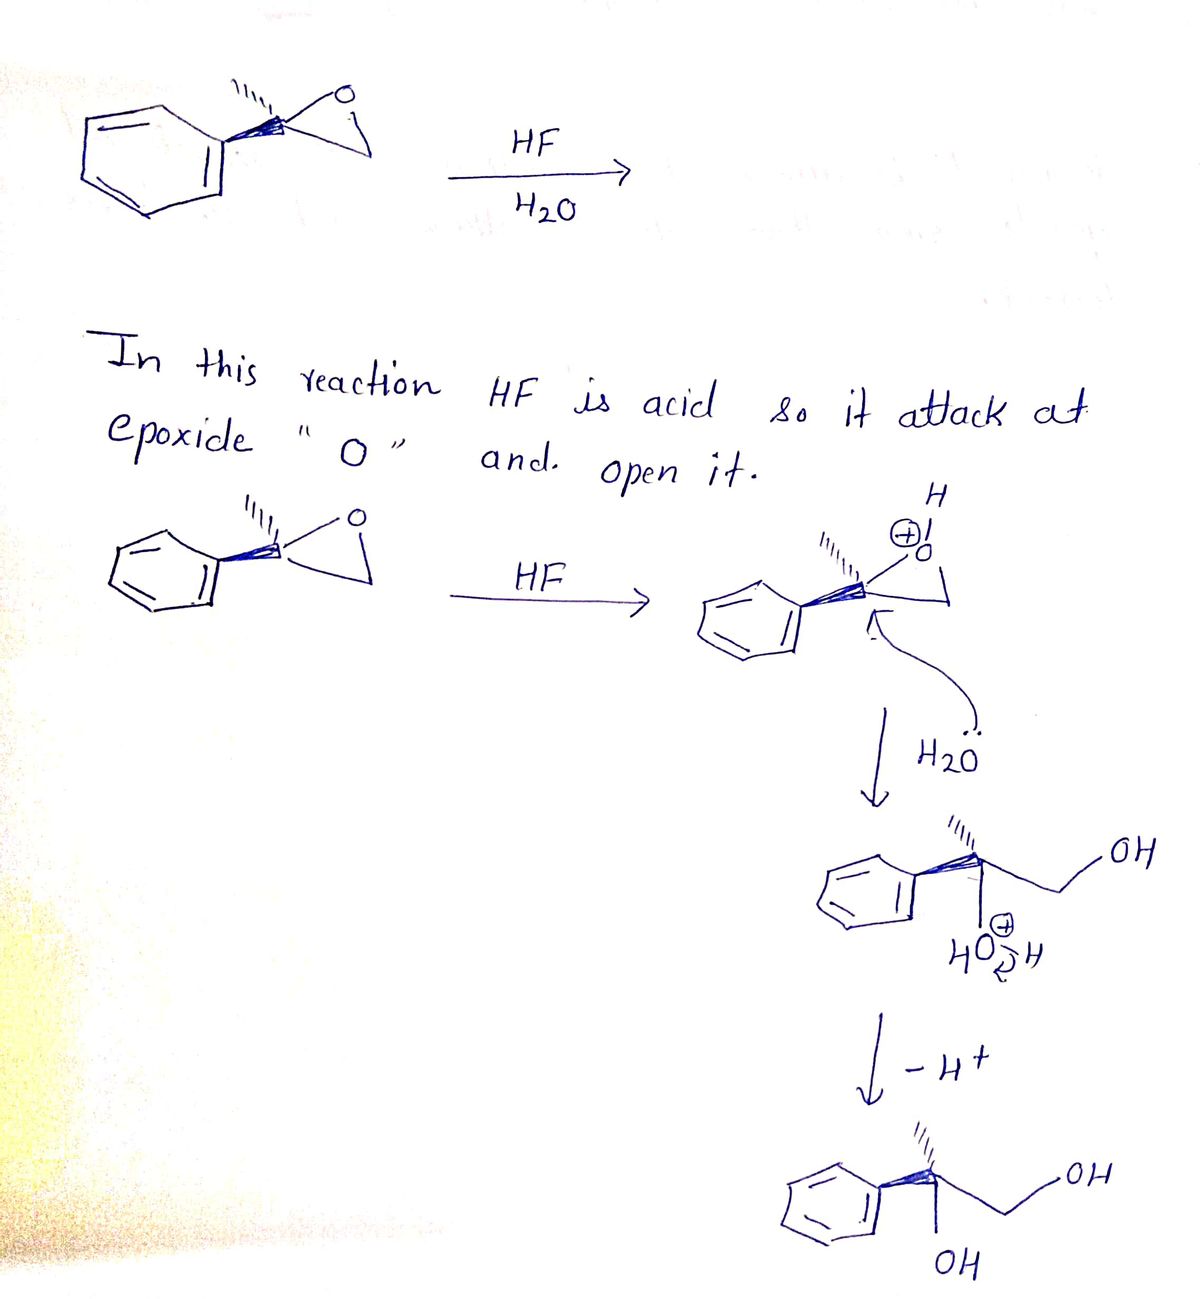 O
HF
H2O
In this reaction HF is acid so it attack at
epoxide "O" and. open it.
H
O
HF
⊕
O
H2Ö
OH
⊕
HO H
- H+
OH
OH